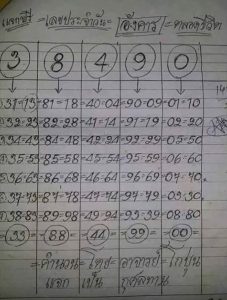 แจกฟรี = เลขประจำวัน = |อังคาร| =
3 8 4 9 0
31-13 = 81-18 = 40-04 = 90-09 = 01-10
32-23 = 82-28 = 41-14 = 91-19 = 02-20
34-43 = 84-48 = 42-24 = 92-29 = 05-50
35-53 = 85-58 = 45-54 = 95-59 = 06-60
36-63 = 86-68 = 46-64 = 96-69 = 07-70
37-73 = 87-78 = 47-74 = 97-79 = 03-30
38-83 = 89-98 = 49-94 = 93-39 = 08-80
(33) = (88) = (44) = (99) = (00)
=คำนวน= โดย= อาจารย์= โกปุ่น
แจก เป็น กุศลทาน